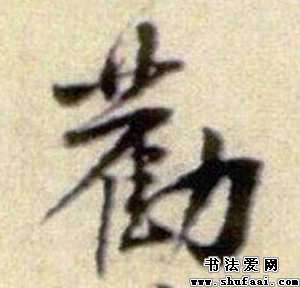 勸
书法爱网
www.shufaai.com